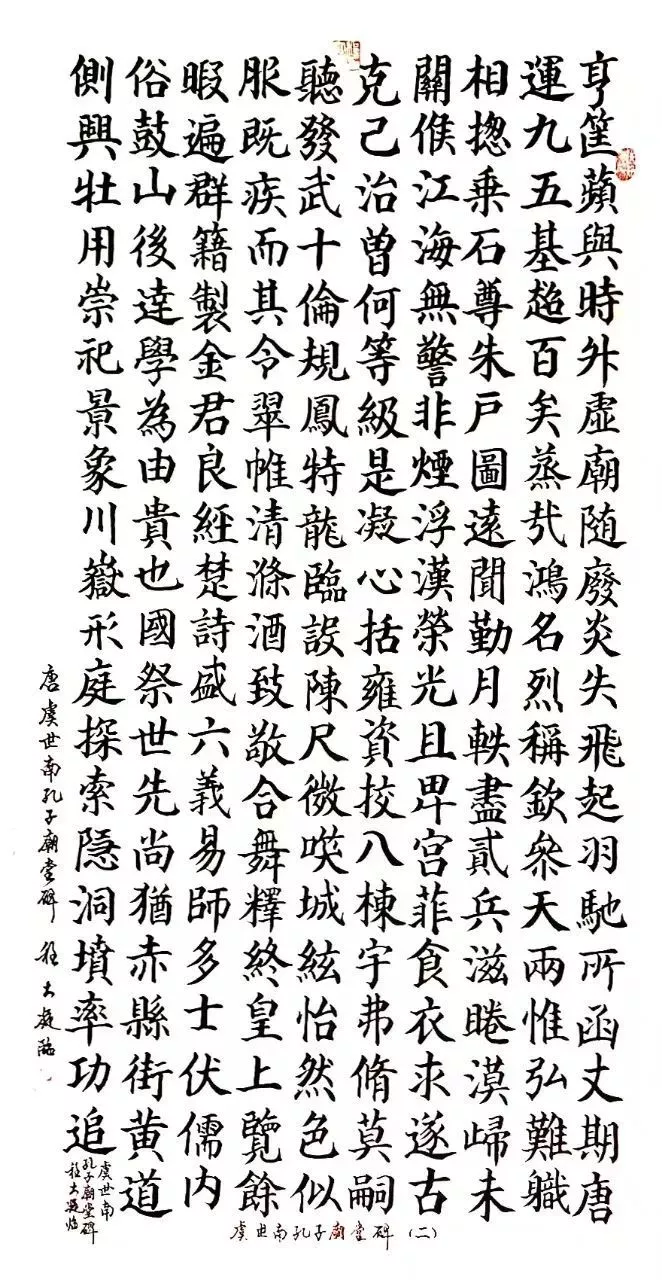 亨筐蘋與時外虛廟随廢炎失飛起羽馳所函丈期唐
運九五基趍百矣蒸㢤鴻名烈稱欽叅天兩惟弘難職
相揔乗石尊朱戸圖遠聞勤月軼盡貳兵滋睠漠㱕未
關候江海無警非煙浮漢榮光且卑宫菲食衣求遂古
克己治曽何等級是凝心括雍資挍八棟宇弗脩莫嗣
聽發武十倫規鳳特龍臨設陳尺微㗛城絃怡然色似
服既疾而其令翠帷清滌酒致敬合舞釋終皇上覽餘
暇遍群籍製金君良經楚詩盛六義易師多士伏儒内
俗鼓山後逹學為由貴也國祭世先尚猶赤縣街黄道
側興壯用崇祀景象川嶽形庭探索隠洞墳率功追
唐虞世南孔子廟堂碑 程大凝臨
虞世南
孔子廟堂碑
程大凝臨
虞世南孔子廟堂碑（二）